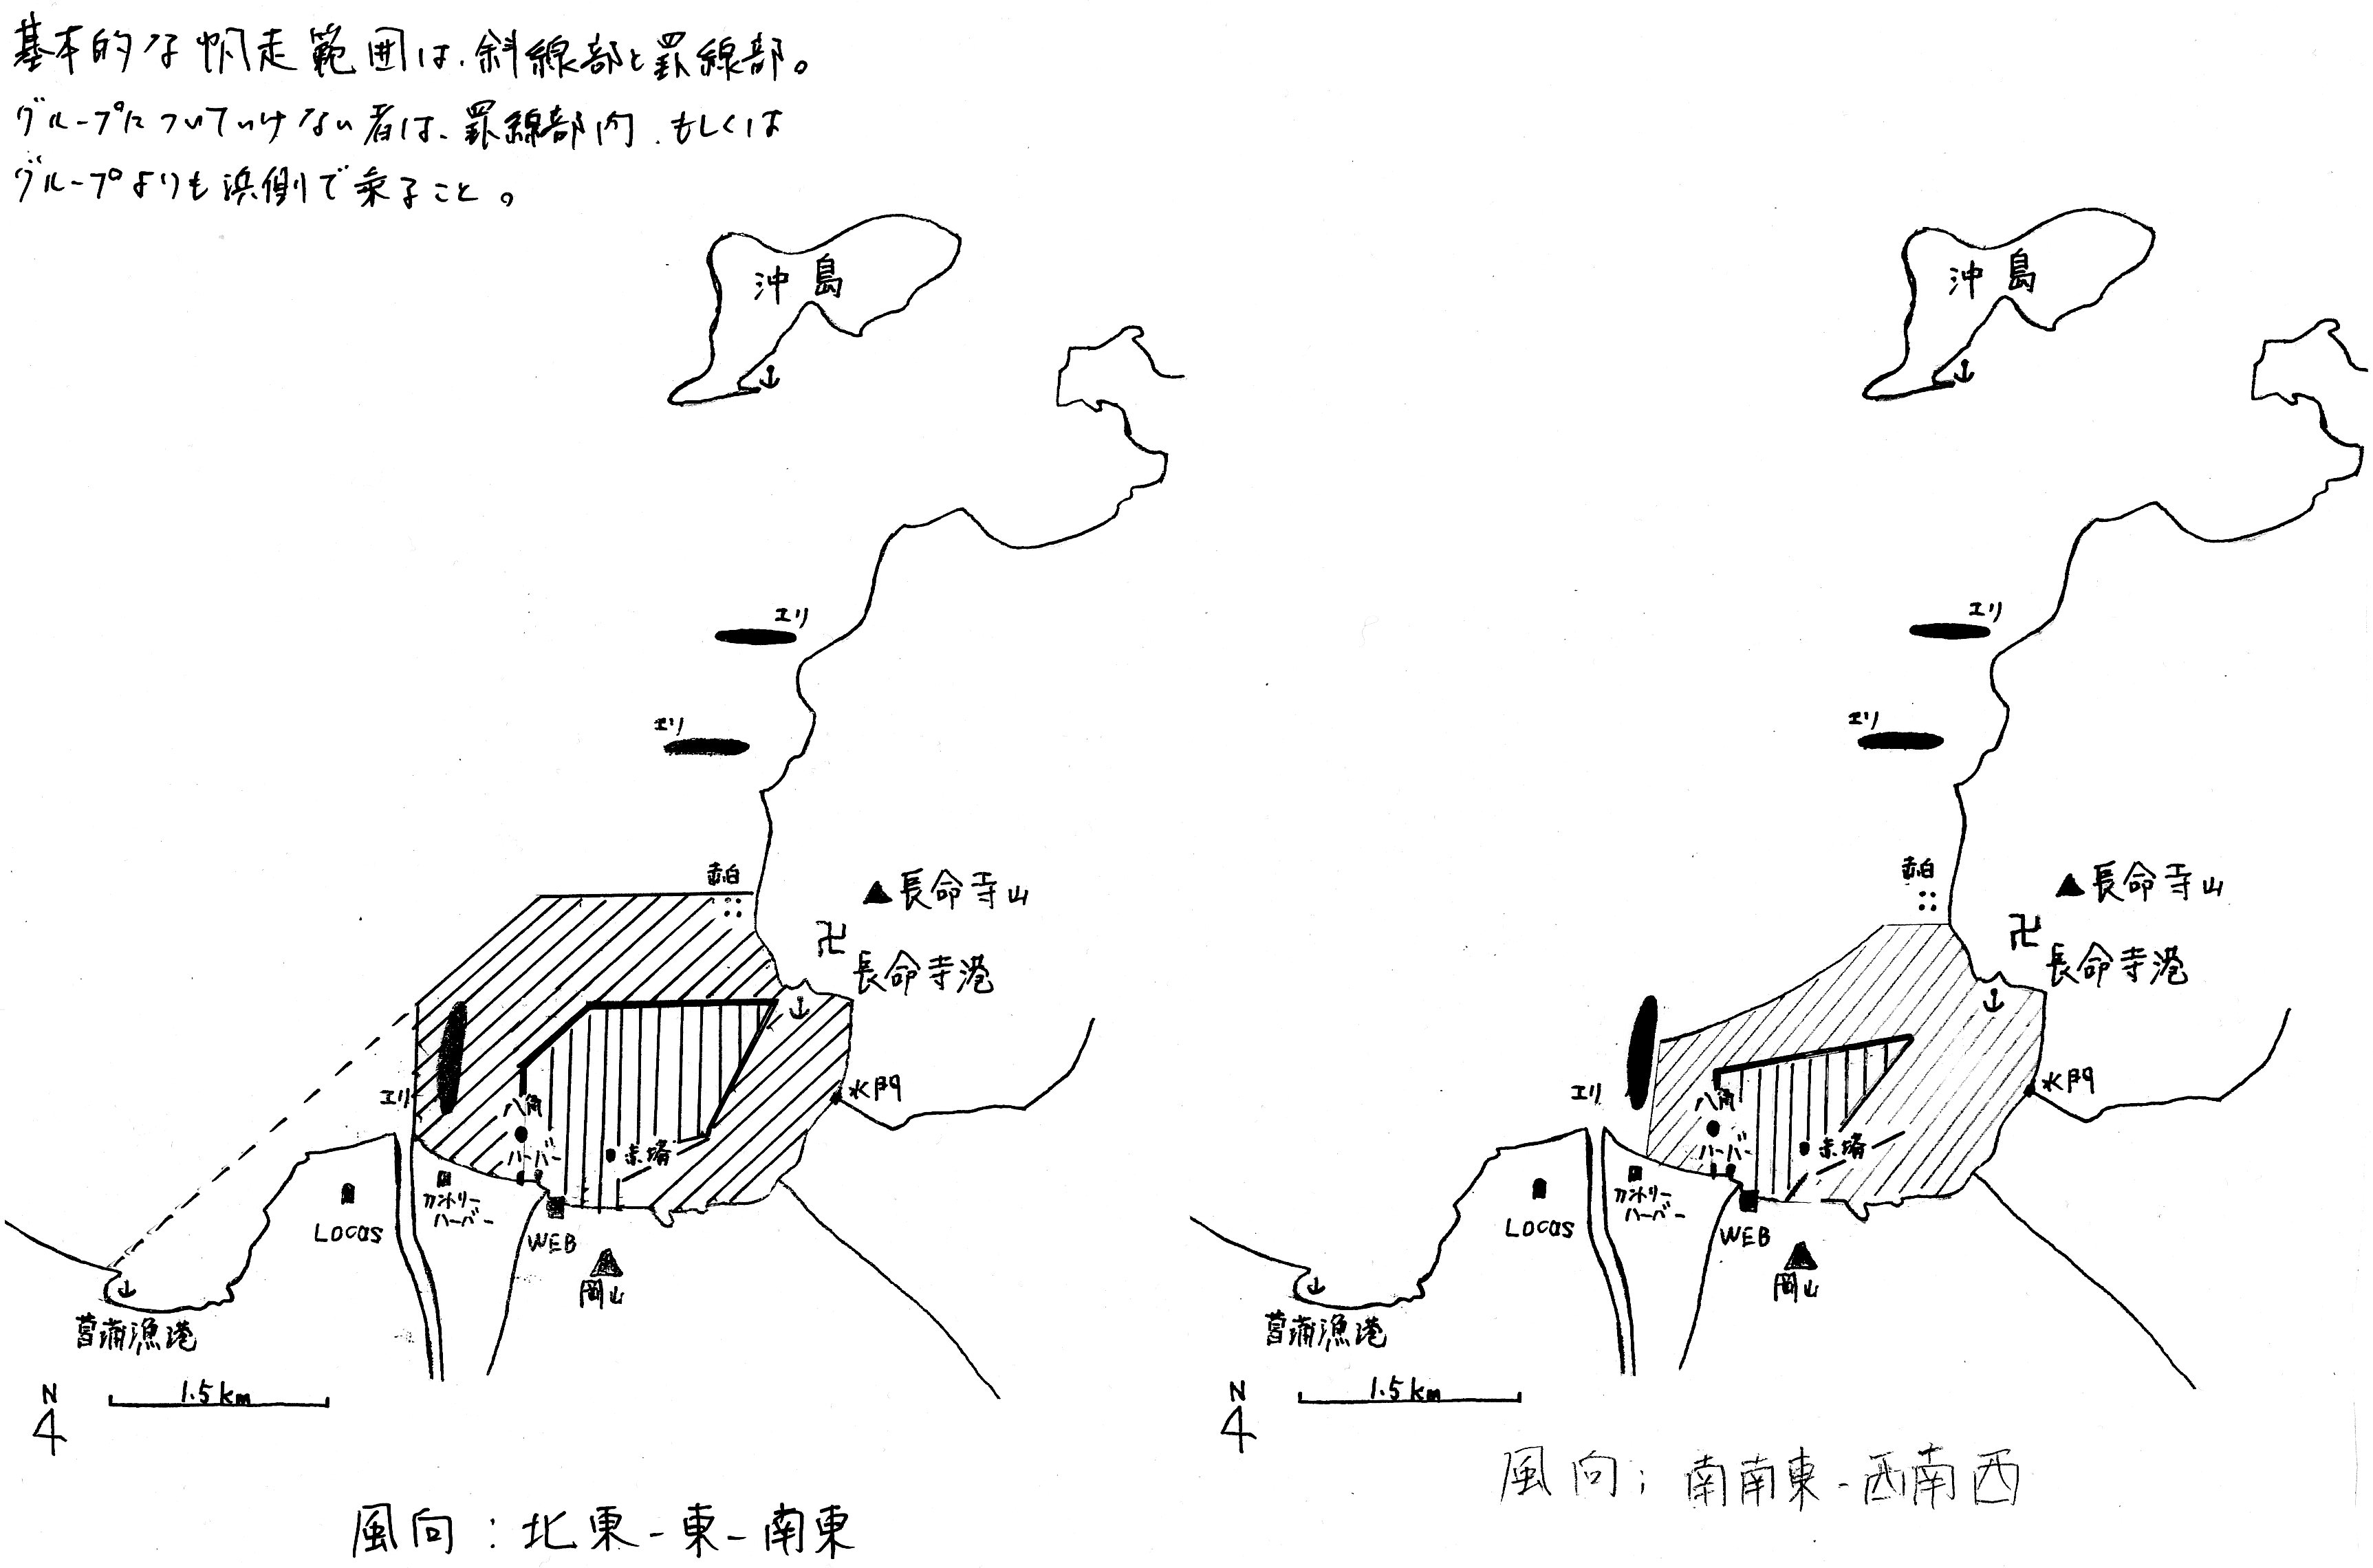 基本的な帆走範囲は、斜線部と罫線部。
グループについていけない者は、罫線部内、もしくは
グループよりも浜側で乗ること。
沖島
エリ
エリ
赤白
▲長命寺山
卍
長命寺港
エリ
八角
水門
ハーバー
赤堵
カントリー
ハーバー
LOCAS
WEB
岡山
菖蒲漁港
1.5km
N
風向：北東-東-南東
沖島
エリ
エリ
赤白
▲長命寺山
卍
長命寺港
エリ
八角
水門
ハーバー
赤堵
カントリー
ハーバー
LOCAS
WEB
岡山
菖蒲漁港
1.5km
N
風向；南南東-西南西